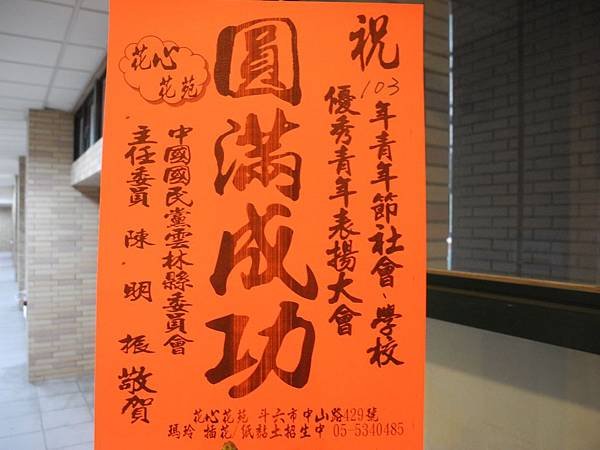 祝
103年青年節社會、學校
優秀青年表揚大會
圓滿成功
中國國民黨雲林縣委員會
主任委員 陳明振 敬賀
花心
花苑
花心花苑 斗六市中山路429號
瑪玲 插花/紙黏土招生中 05-5340485